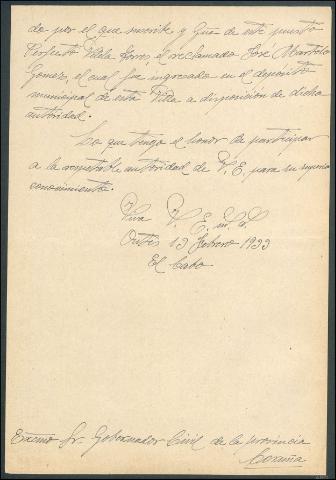 do por el que suscribe y Guardia de este puesto
Perfecto Vilela Torres, el reclamado José
Gomez, el cual fue ingresado en el depósito
municipal de esta Villa a disposición de dicha
autoridad.
Lo que tengo el honor de participar
a la respetable autoridad de V. E. para su superior
conocimiento.
Viva V. E. m. a.
13 Febrero 1933
El Cabo
Excmo Sr. Gobernador Civil de la provincia
Coruña